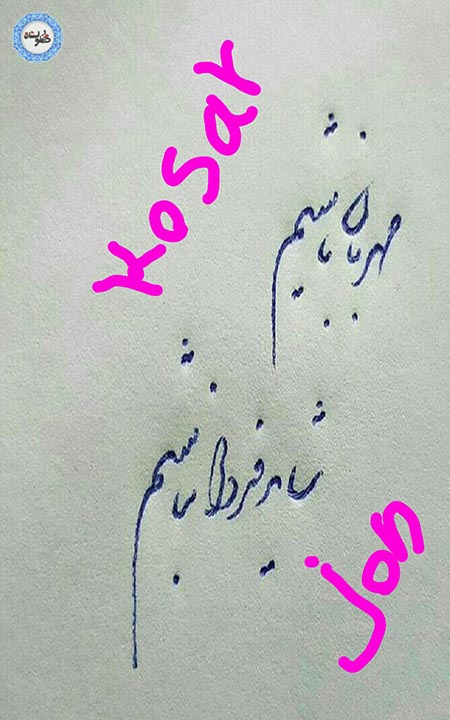 Kosar
مهربان باشیم
شاید فردا نباشیم
jon